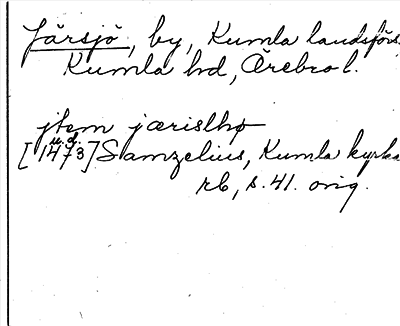 Järsjö, by, Kumla landsförs.
Kumla hd, Örebro l.
jtem jærislhø
u.d.
[1473] Samzelius, Kumla kyrkas
rb, s. 41. orig.